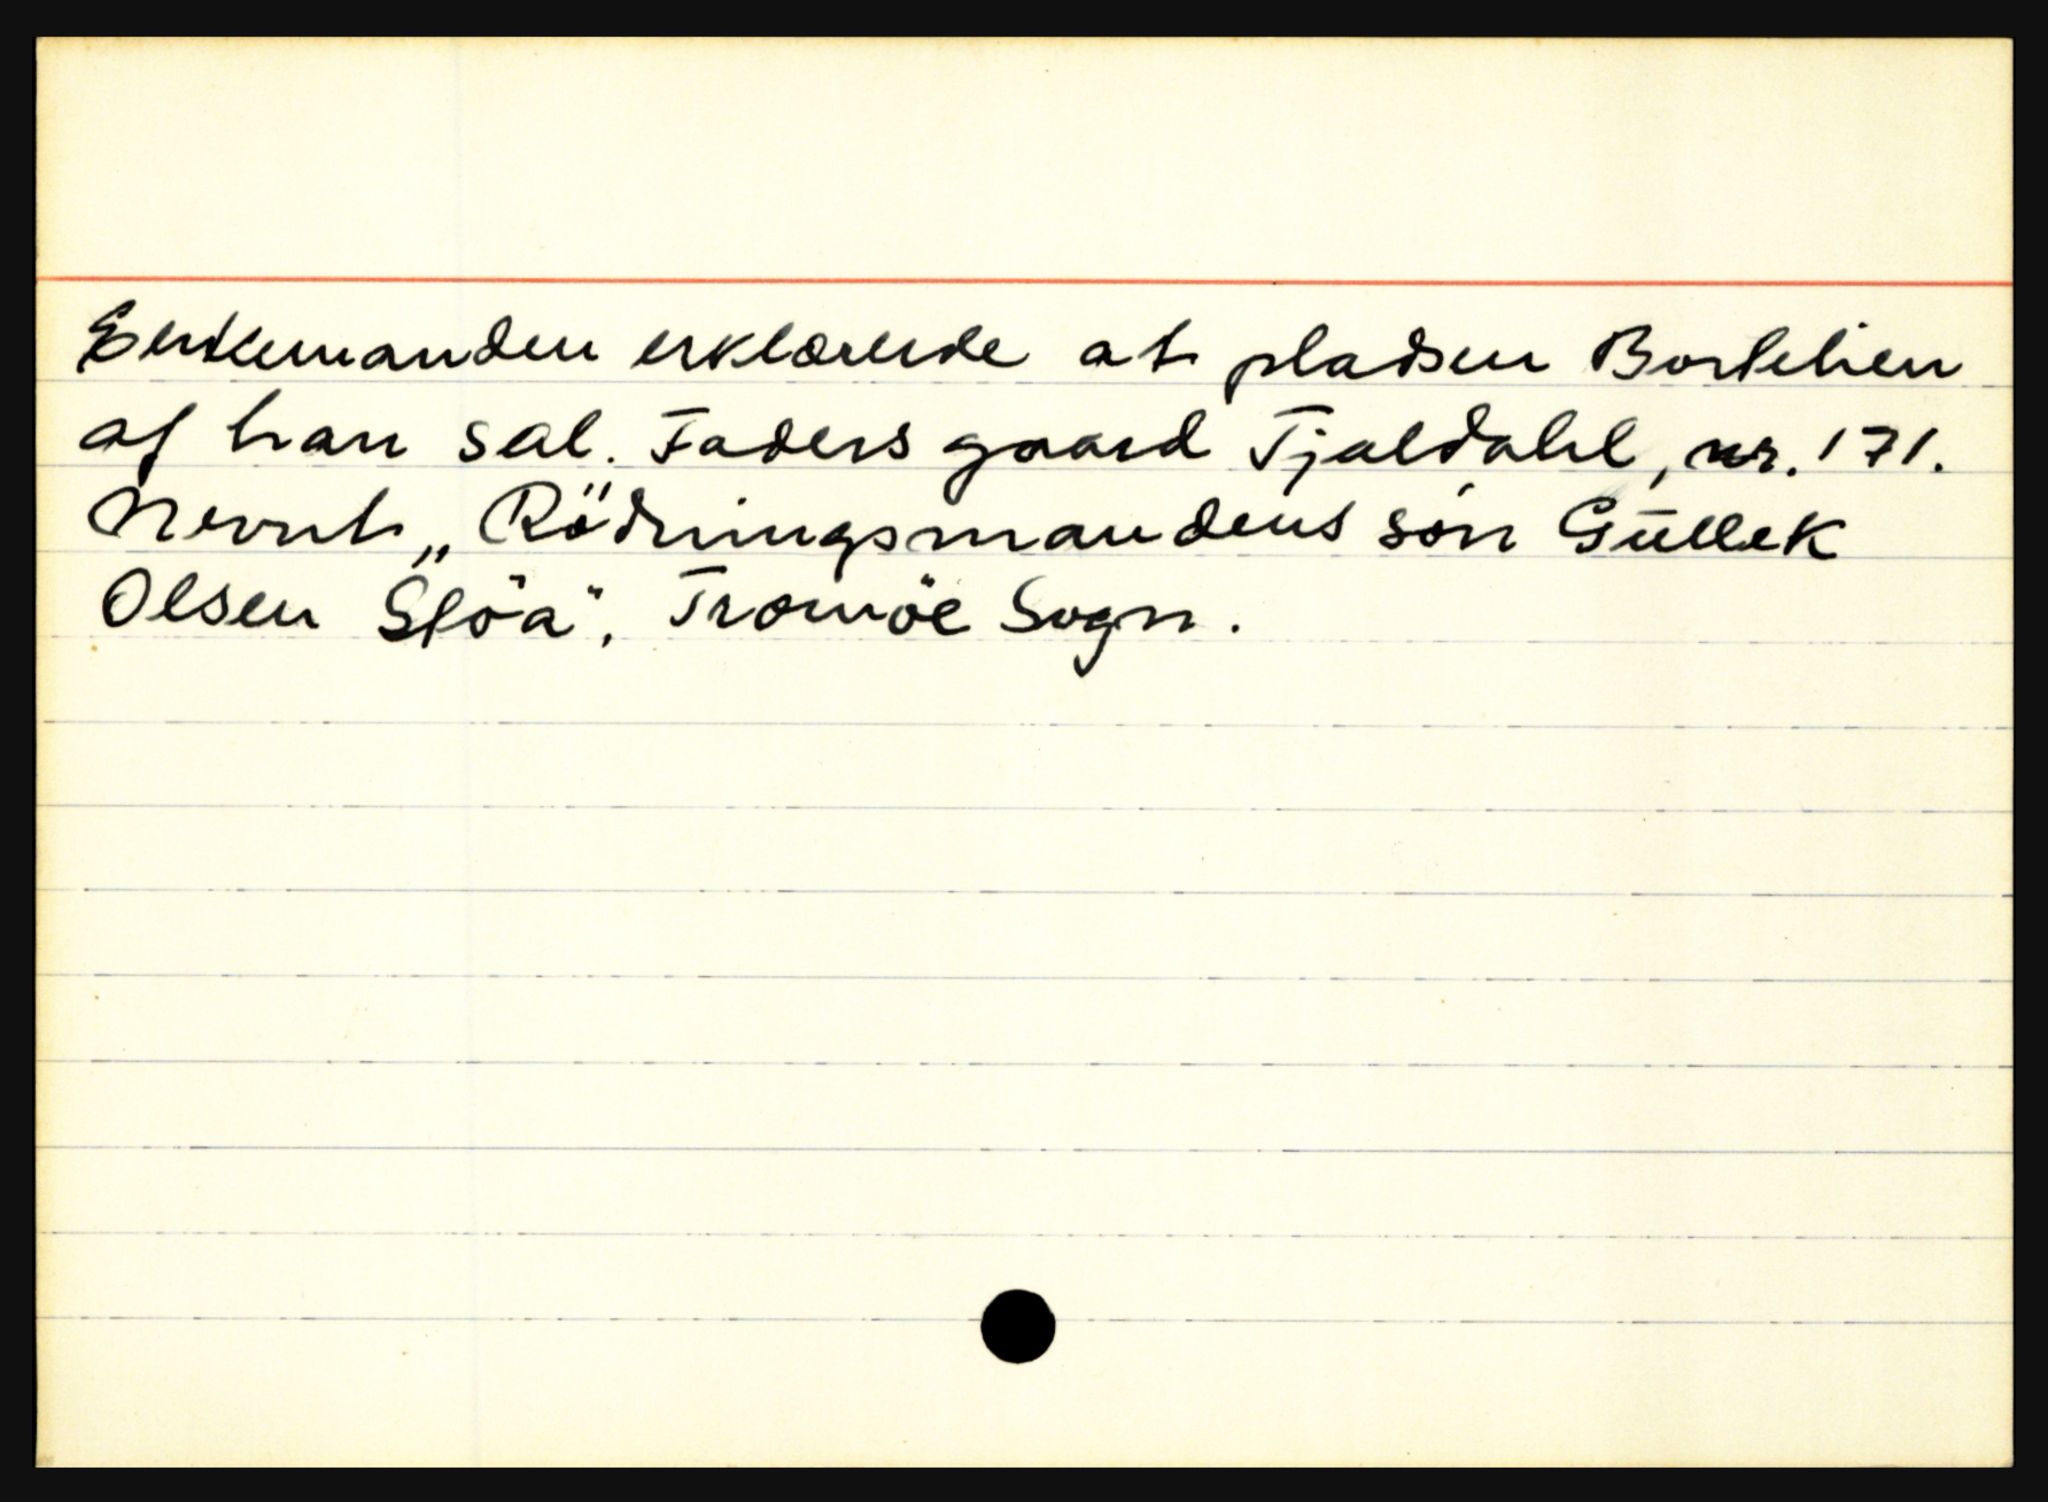 Enkemanden erklærede at pladsen Bortelien
af han sal. Faders gaard Tjaldahl, nr. 171.
Nevnt „Rödningsmandens sön Güllek
Olsen Slöa", Tromöe Sogn.